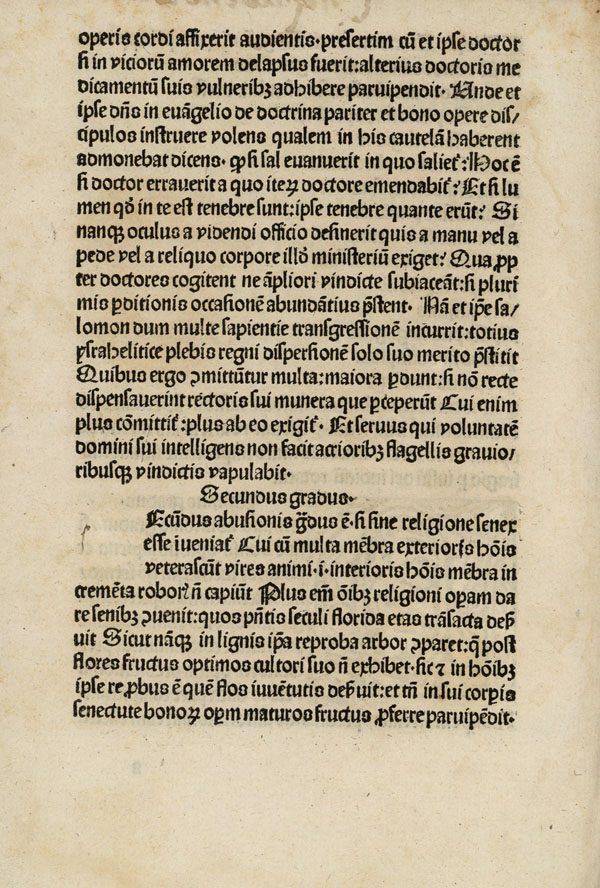 operis cordi affixerit audientis·presertim cū et ipse doctor
si in viciorū amorem delapsus fuerit:alterius doctoris me
dicamentū suis vulneribꝫ adhibere paruipendit· Unde et
ipse dn̄s in euāgelio de doctrina pariter et bono opere dis/
cipulos instruere volens qualem in his cautelā haberent
admonebat dicens· ꝙ si sal euanuerit in quo salieť? Hoc ē
si doctor errauerit a quo iteꝝ doctore emendabiť? Et si lu
men qđ in te est tenebre sunt:ipse tenebre quante erūt? Si
nanqꝫ oculus a videndi officio desinerit quis a manu vel a
pede vel a reliquo corpore illđ ministeriū exiget? Qua ꝓp
ter doctores cogitent ne āpliori vindicte subiaceāt:si pluri
mis ꝑditionis occasionē abundātius p̄stent· Nā et ip̄e sa/
lomon dum multe sapientie transgressionē incurrit:totius
ysrahelitice plebis regni dispersionē solo suo merito p̄stitit
Quibus ergo ꝯmittūtur multa:maiora ꝑdunt:si nō recte
dispensauerint rectoris sui munera que ꝑceperūt Cui enim
plus cōmittiť:plus ab eo exigiť· Et seruus qui voluntatē
domini sui intelligens non facit acrioribꝫ flagellis grauio/
ribusqꝫ vindictis vapulabit·
Secundus gradus·
Ecūdus abusionis g̃dus ē·si sine religione senex
esse īueniať Cui cū multa mēbra exterioris hōis
veterascūt vires animi·i·interioris hōis mēbra in
cremēta roboꝝ n̄ capiūt Plus em̄ oībꝫ religioni oꝑam da
re senibꝫ ꝯuenit:quos pn̄tis seculi florida etas trāsacta des̄
uit Sicut nāqꝫ in lignis ip̄a reproba arbor ꝯparet:q̄ post
flores fructus optimos cultori suo n̄ exhibet·sic ⁊ in hōibꝫ
ipse reꝓbus ē quē flos iuuētutis des̄uit:et tn̄ in sui corꝑis
senectute bonoꝝ oꝑm maturos fructus ꝓferre paruipēdit·